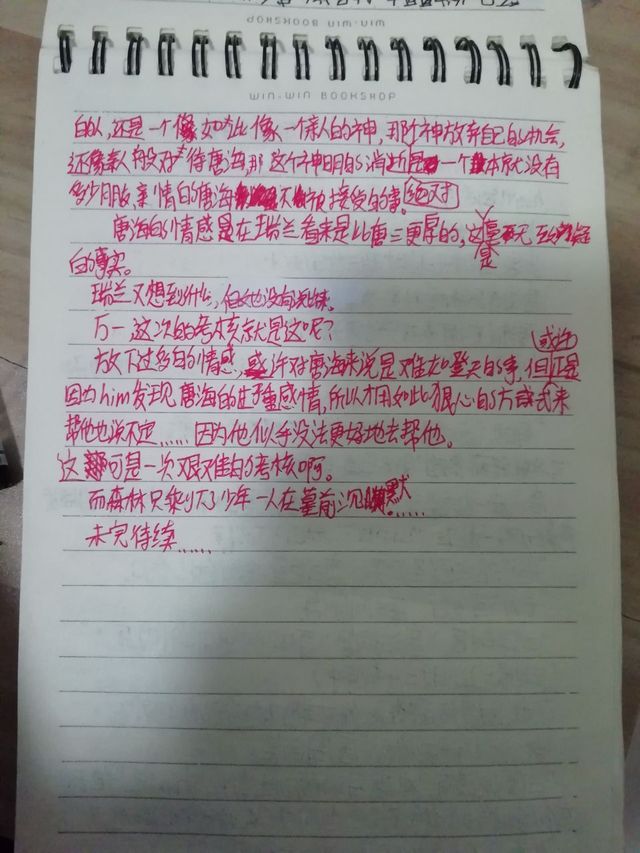 WIN-WIN BOOKSHOP
WIN-WIN BOOKSHOP
的人,还是一个像如此像一个亲人的神,那个神放弃自己的机会,
还像亲人般对待唐海,那这个神明的消逝是一个本就没有
多少朋友、亲情的唐海不被接受的事。绝对
唐海的情感是在瑞兰看来是比唐三更厚的,这是毫无疑
的事实。
瑞兰又想到什么,但她也没有说辣。
万一,这次的考核就是这呢?
放下过多的情感,或许对唐海来说是难如登天的事,但或许正是
因为him发现唐海的注重感情,所以才用如此狠心的方式来
帮他也说不定……因为他似乎没法更好地去帮他。
这可是一次艰难的考核啊。
而森林只剩下了少年一人在墓前沉默……
未完待续……